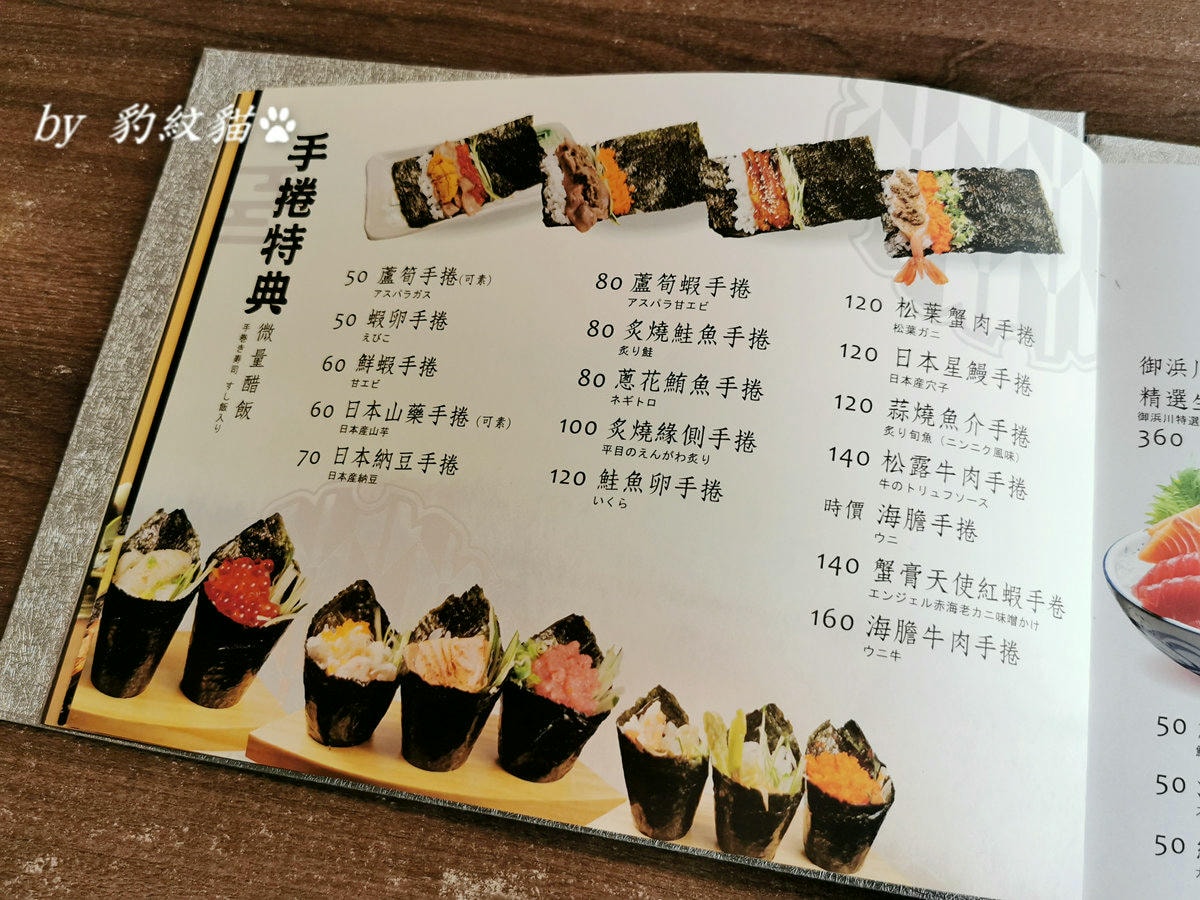 by 豹紋貓
手捲特典
微量醋飯
手巻き寿司 すし飯入り
50 蘆筍手捲(可素)
アスパラガス
50 蝦卵手捲
えびこ
60 鮮蝦手捲
甘エビ
60 日本山藥手捲(可素)
日本産山芋
70 日本納豆手捲
日本産納豆
80 蘆筍蝦手捲
アスパラ甘エビ
80 炙燒鮭魚手捲
炙り鮭
80 蔥花鮪魚手捲
ネギトロ
100 炙燒緣側手捲
平目のえんがわ炙り
120 鮭魚卵手捲
いくら
120 松葉蟹肉手捲
松葉ガニ
120 日本星鰻手捲
日本産穴子
120 蒜燒魚介手捲
炙り旬魚(ニンニク風味)
140 松露牛肉手捲
牛のトリュフソース
時價 海膽手捲
ウニ
140 蟹膏天使紅蝦手卷
エンジェル赤海老カニ味噌かけ
160 海膽牛肉手捲
ウニ牛
御浜川
精選
御浜川特選
360
50
50
50